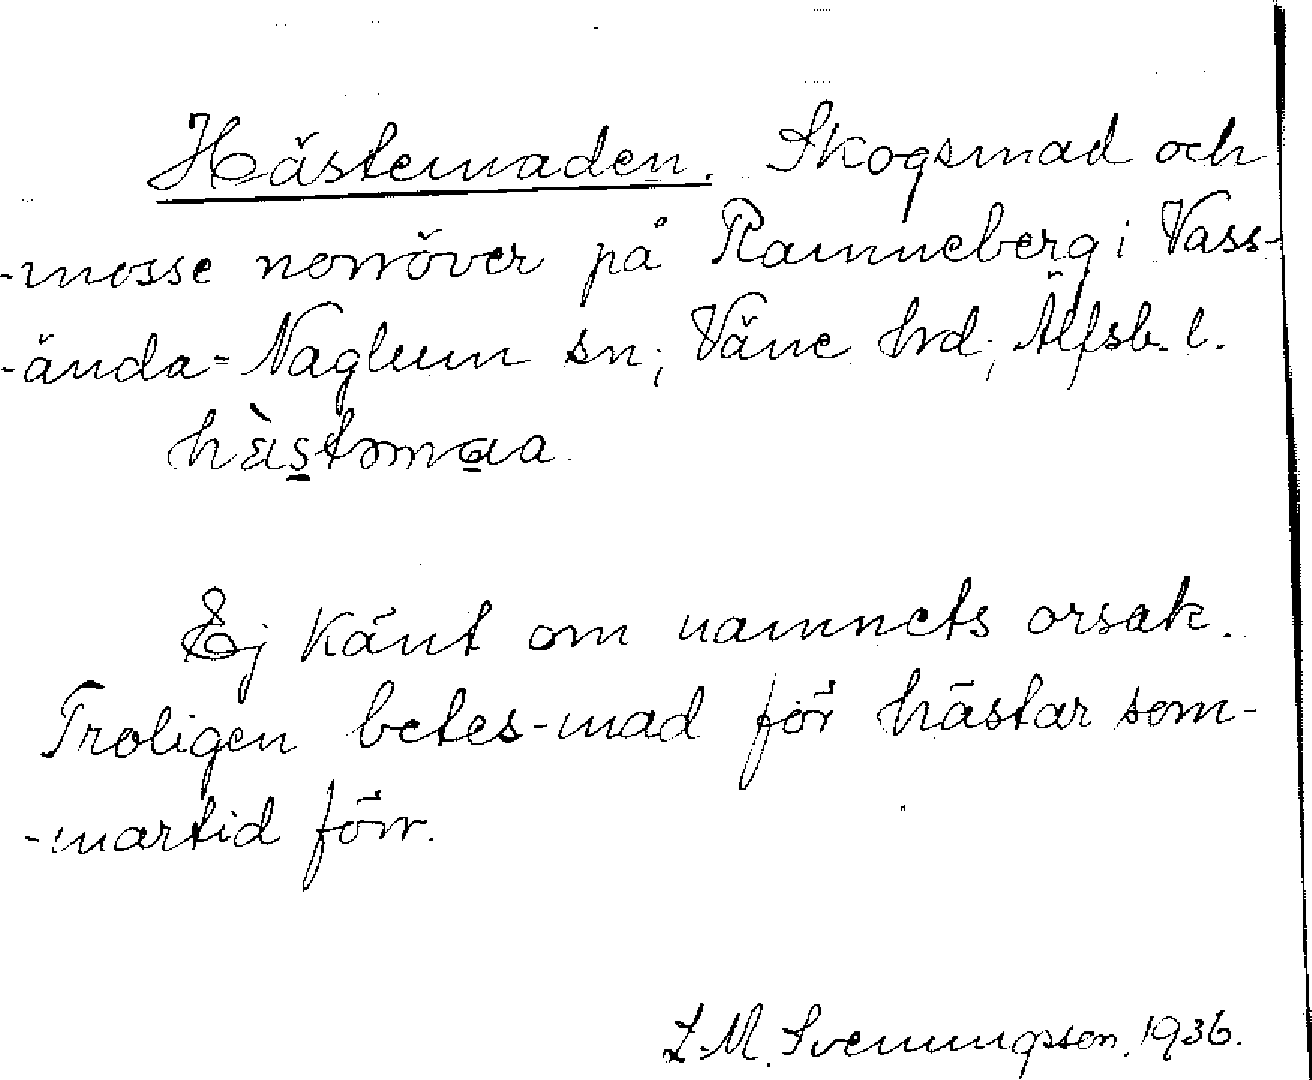 Hästemaden. Skogsmad och
-mosse norröver på Ranneberg i Vass-
-ända-Naglum sn; Väne hrd; Älfsb. l.
hàstəmaa.
Ej känt om namnets orsak.
Troligen betes-mad för hästar som-
-martid förr.
L.M. Svenungsson. 1936.